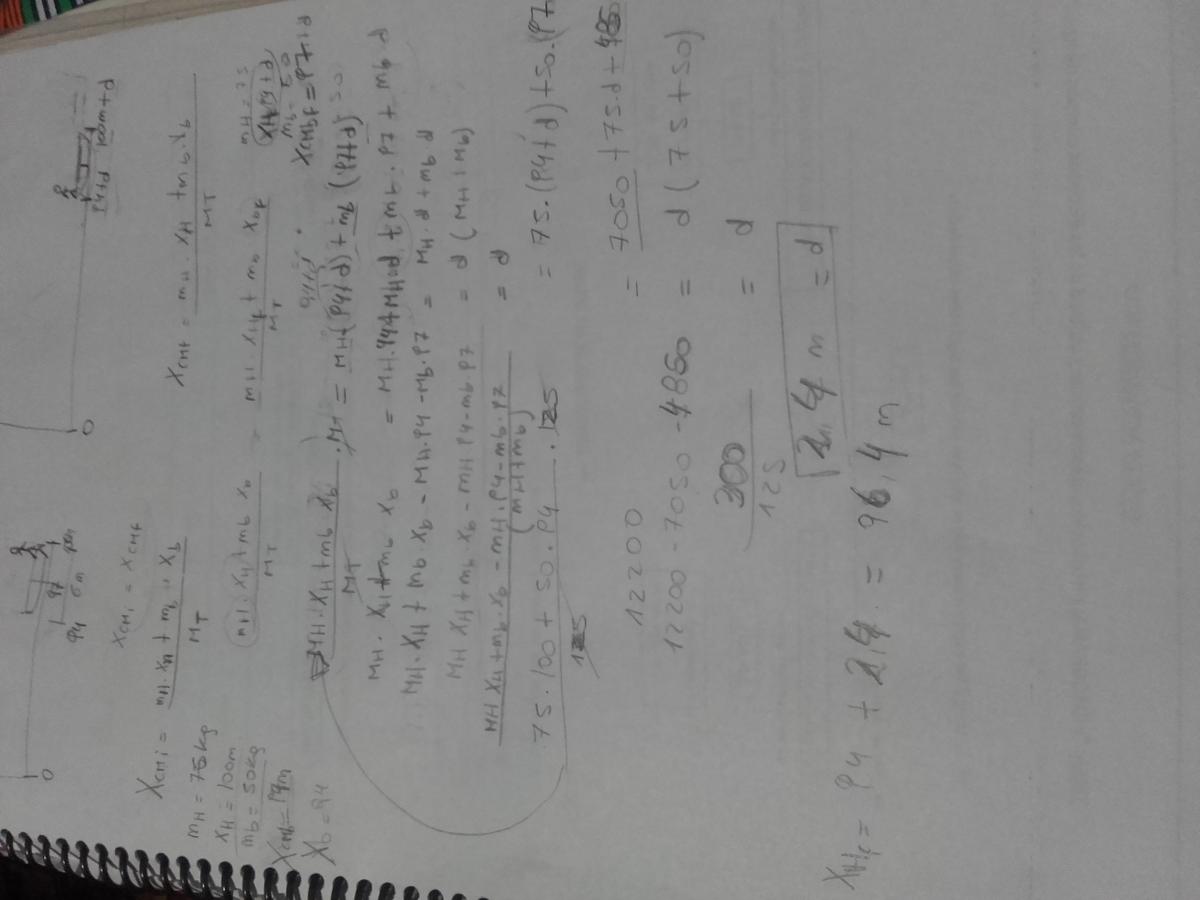 O
94 97 100m
6m
O
94+d 100m+d
X_CMi = X_CMf
X_CMi = m_H . x_H + m_b . x_b / M_T
X_CMf = m_H . x_H + m_b . x_b / M_T
m_H = 75kg
x_H = 100m
m_b = 50kg
X_CMb = 97m
X_b = 94
m_H . x_H + m_b x_b / M_T = m_H . x_Hf + m_b x_bf / M_T
m_H = 75
X_H 94+d
m_b = 50
X_CMbf = 97+d
M_H . X_H + m_b X_b / M_T . M_T = M_H (94+d) + m_b (97+d)
M_H . X_H + m_b X_b = M_H . 94 + M_H . d + m_b . 97 + m_b . d
M_H . X_H + m_b . X_b - M_H . 94 - m_b . 97 = M_H . d + m_b . d
M_H X_H + m_b . X_b - m_H 94 - m_b 97 = d (M_H + m_b)
M_H X_H + m_b . X_b - m_H . 94 - m_b . 97 / (m_H + m_b) = d
75 . 100 + 50 . 94 / 125 . 125 = 75 . (94+d) + 50 . (97
12200 = 7050 + 75 . d + 4850
12200 - 7050 - 4850 = d (75 + 50)
300 / 125 = d
2,4 m = d
X_Hf = 94 + 2,4 = 96,4 m